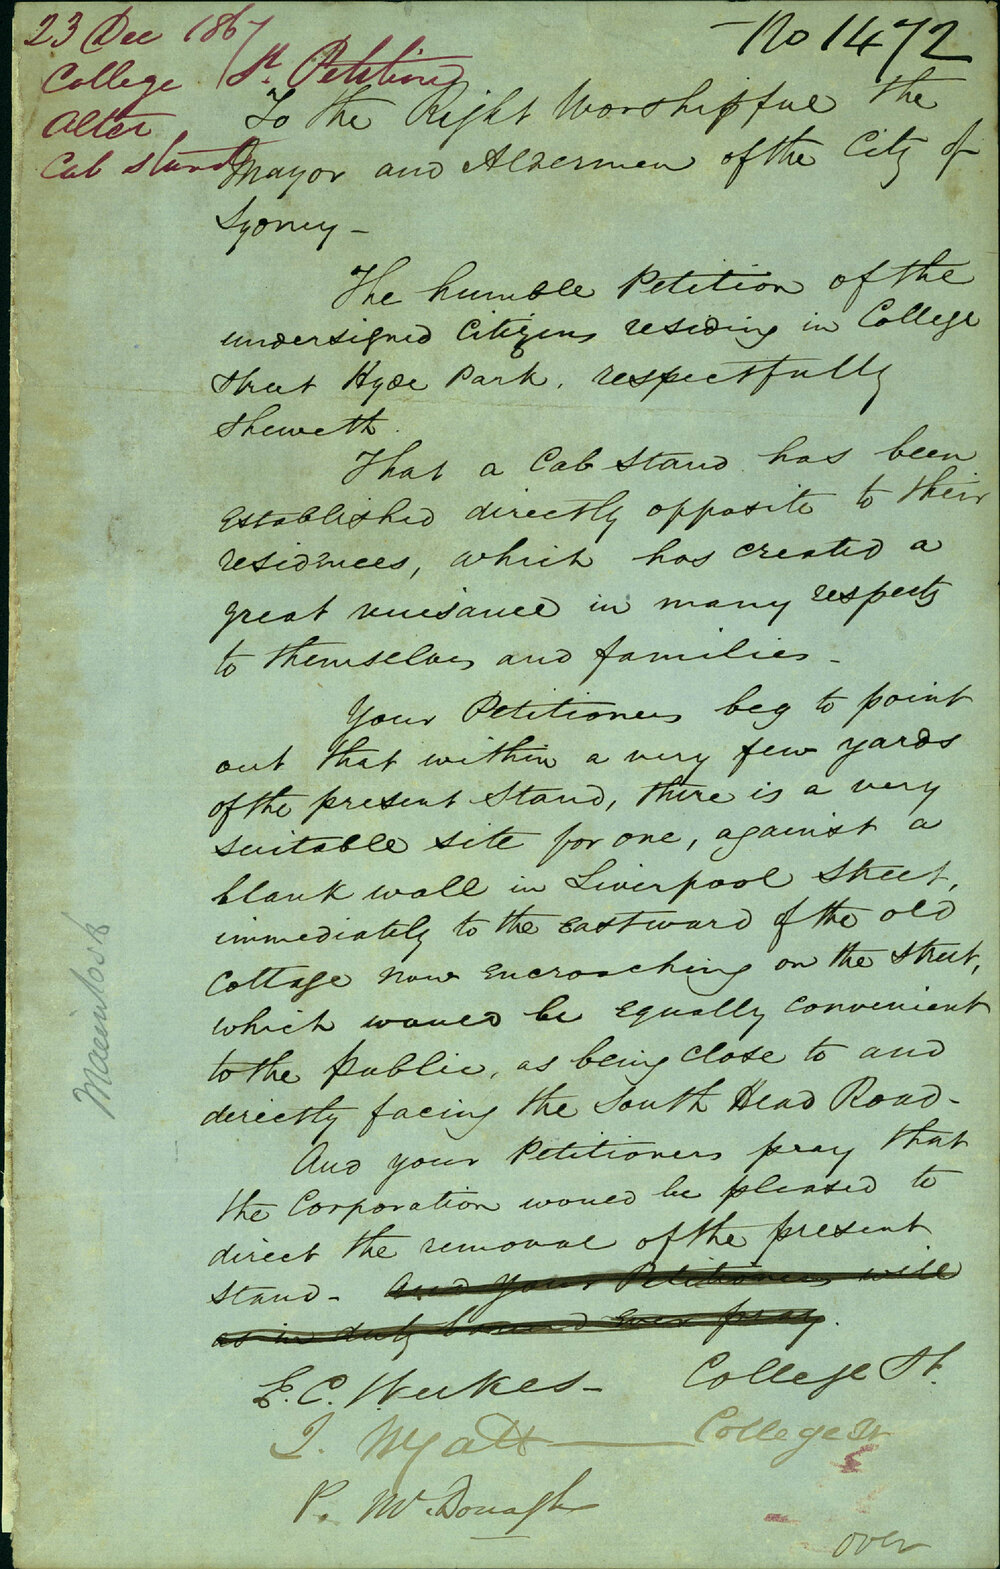 23 Dec 1867
College St. Petition
alter
Cab Stand
No 1472
To the Right Worshipful the
Mayor and Aldermen of the City of
Sydney -
The humble Petition of the
undersigned Citizens residing in College
Street Hyde Park, respectfully
sheweth.
That a Cab Stand has been
established directly opposite to their
residences, which has created a
great nuisance in many respects
to themselves and families -
Your Petitioners beg to point
out that within a very few yards
of the present Stand, there is a very
suitable site for one, against a
blank wall in Liverpool Street,
immediately to the Eastward of the old
Cottage now encroaching on the Street,
which would be equally convenient
to the public, as being close to and
directly facing the South Head Road -
And your Petitioners pray that
the Corporation would be pleased to
direct the removal of the present
Stand - And your Petitioners will
as in duty bound ever pray.
E. C. Weekes - College St.
J. Wyatt — College St
P. McDonagh
over